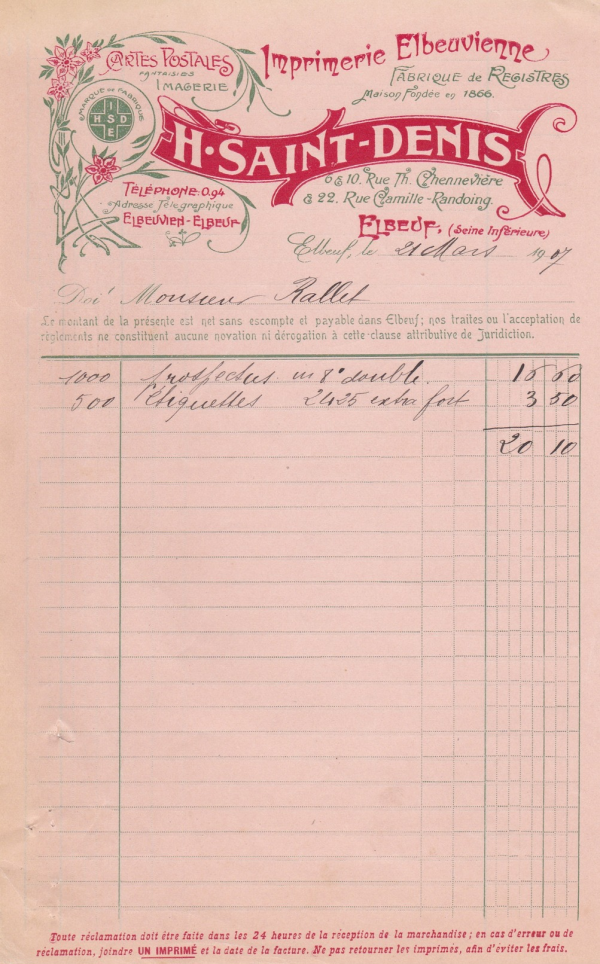 Cartes Postales
Fantaisies
Imagerie
Marque de Fabrique
I
HSD
E
Imprimerie Elbeuvienne
Fabrique de Registres
Maison Fondée en 1866.
H. SAINT-DENIS
6 & 10. Rue Th. Chennevière
& 22. Rue Camille-Randoing.
Téléphone 0.94
Adresse Télégraphique
Elbeuvien-Elbeuf
Elbeuf, (Seine Inférieure)
Elbeuf, le 21 Mars 1907
Doit Monsieur Rallet
Le montant de la présente est net sans escompte et payable dans Elbeuf; nos traites ou l'acceptation de
règlements ne constituent aucune novation ni dérogation à cette clause attributive de Juridiction.
1000 prospectus in 8° double. 16 60
500 Etiquettes 24x25 extra fort 3 50
20 10
Toute réclamation doit être faite dans les 24 heures de la réception de la marchandise; en cas d'erreur ou de
réclamation, joindre UN IMPRIMÉ et la date de la facture. Ne pas retourner les imprimés, afin d'éviter les frais.